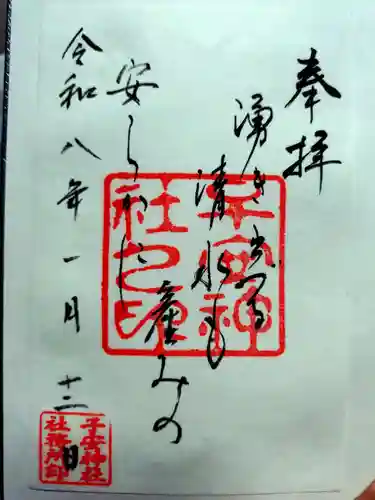 奉拝
湧き出る
清水も
産みの
安らかに
令和八年一月十二日
子安神社之印
子安神社
社務所印